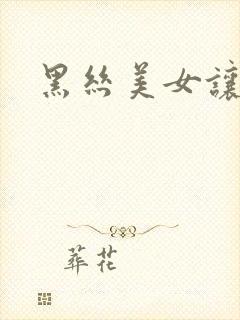 黑丝美女讓
葬花